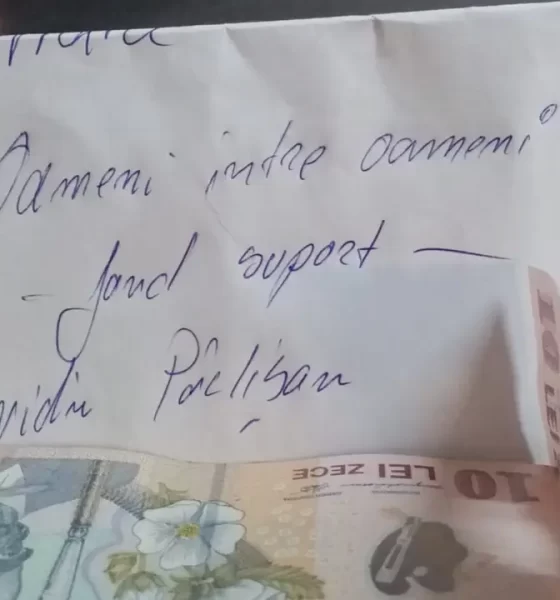 Oameni intre oameni"
- fond suport -
vidiu Pârlișan
10 LEI ZECE
10 LEI